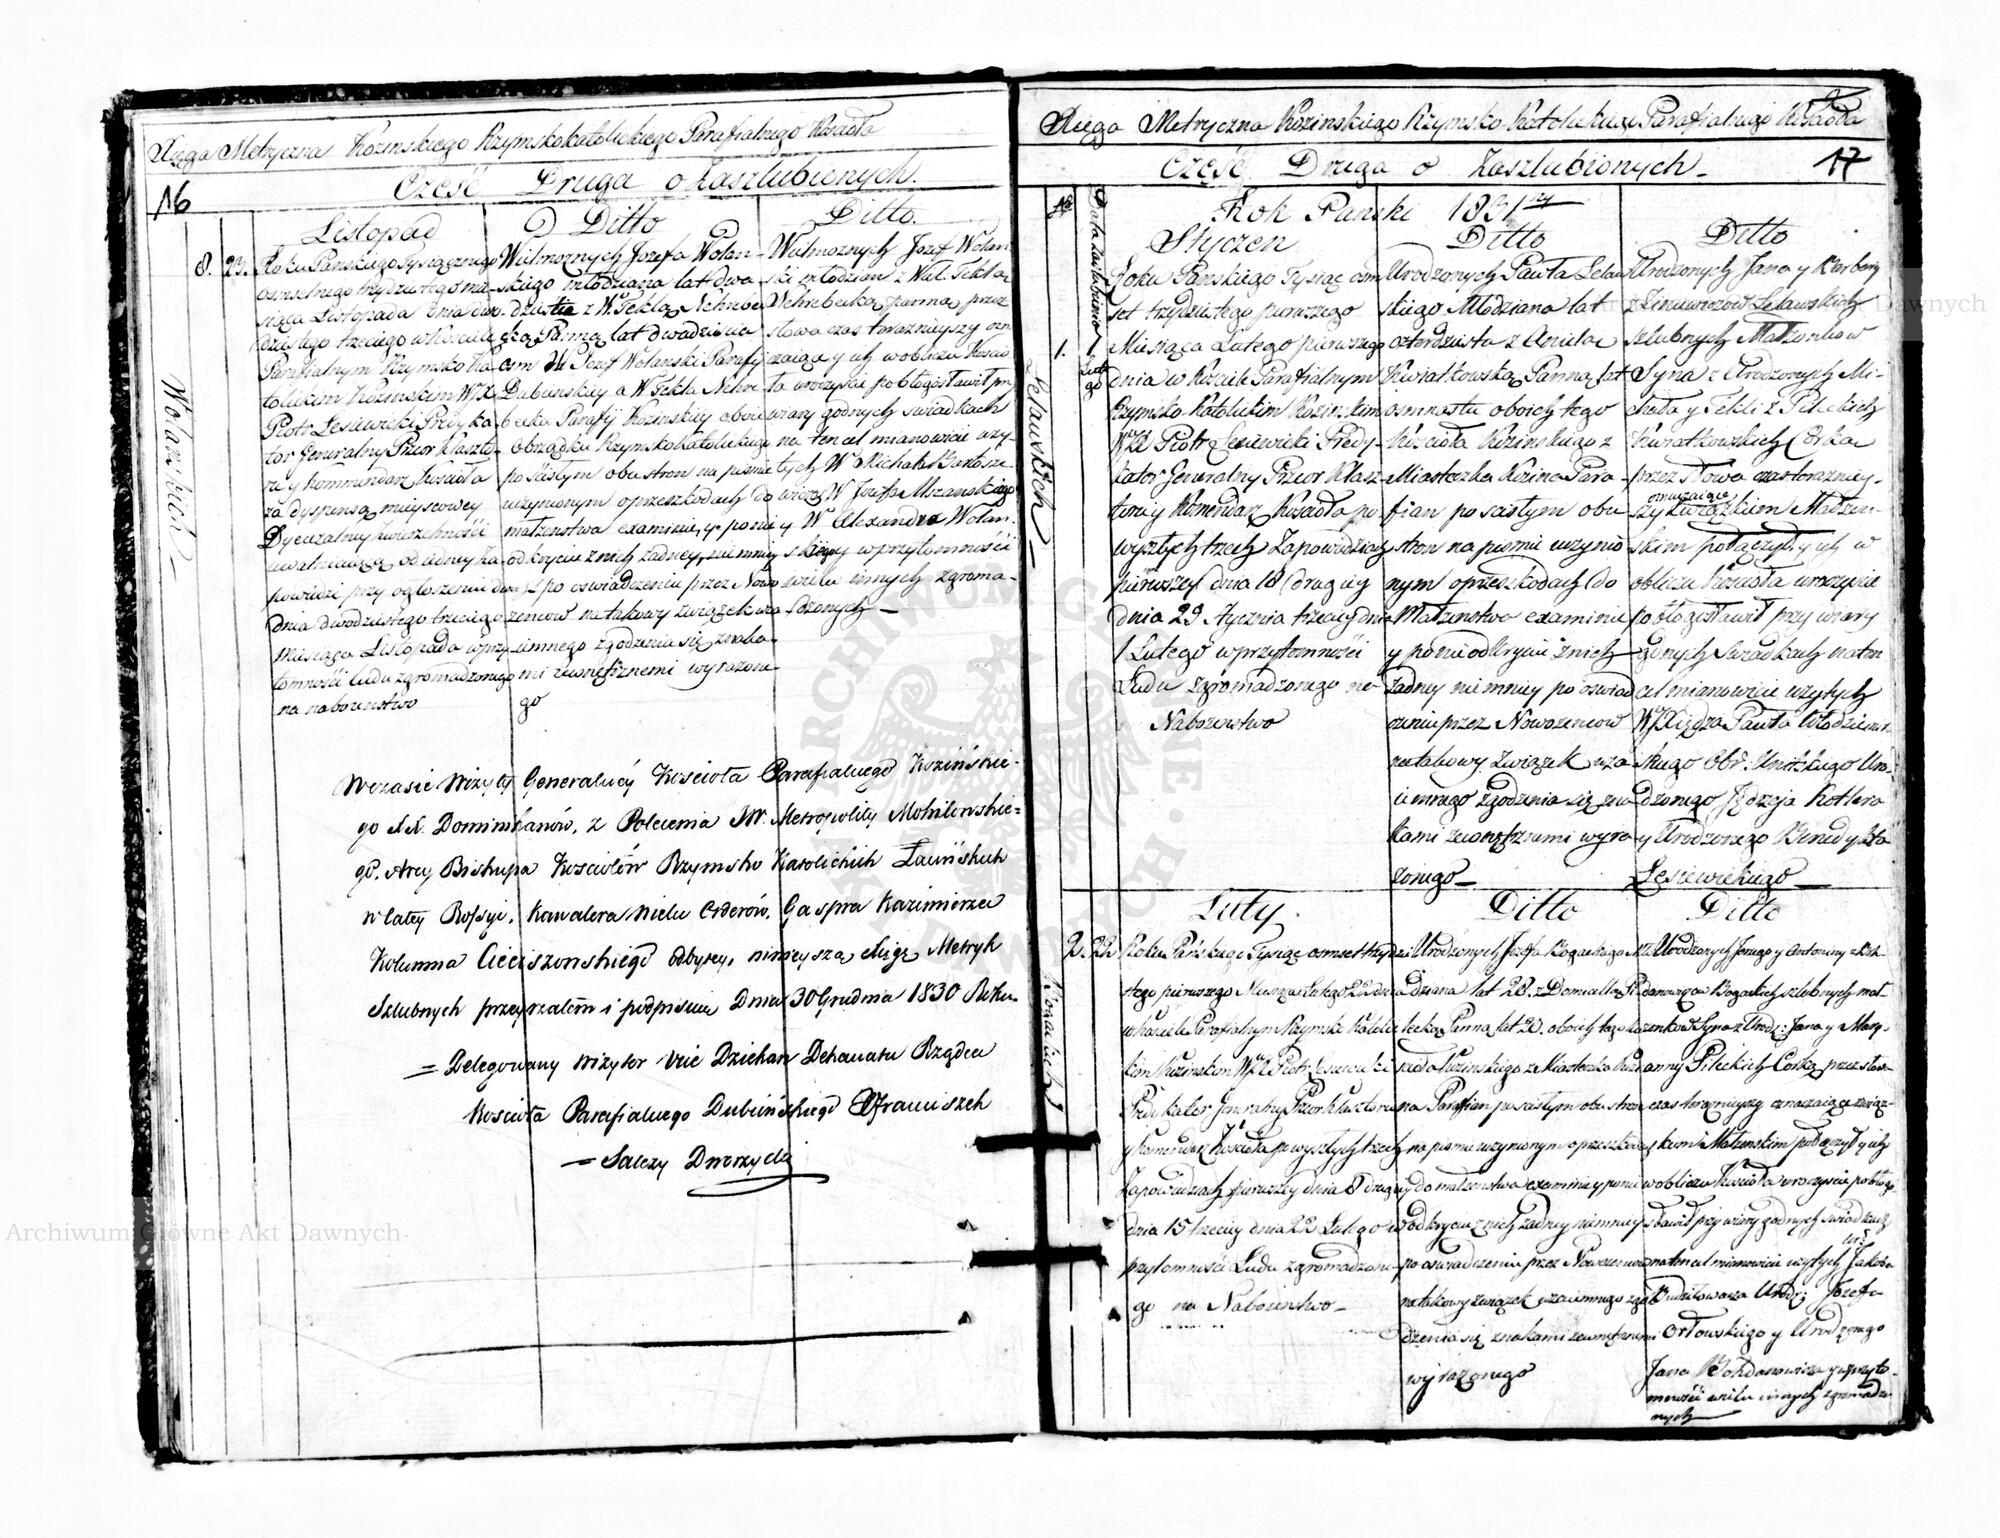 Xięga Metryczna Kozinskiego Rzymskokatolickiego Parafialnego Koscioła
16
Część Druga o Zaszlubionych.
Listopad
8. 23.
Wolanskich
Roku Panskiego Tysiącznego
osmsetnego trzydziestego mie-
siąca Listopada dnia dwu-
dziestego trzeciego w Kosciele
Parafialnym Rzymsko Ka-
tolickim Kozinskim WJX.
Piotr Lesiewicki Predyka-
tor Generalny Przeor Klaszto-
ru y Kommendarz Kościoła
za dyspensą mieyscowey
Dyecezalney zwierzchności
uwalniaiącą od iedney za-
powiedzi przy ogłoszeniu dwu
dnia dwudziestego trzeciego
Miesiąca Listopada w przy-
tomności ludu zgromadzonego
na nabozenstwo
Ditto
Wielmoznych Jozefa Wolan-
skiego młodziana lat dwa-
dziescia z Wą Teklą Nehrebe-
cką Panną lat dwadziescia
osm W Jozef Wolanski Parafij
Dubienskiey a W Tekla Nehre-
becka Parafij Kozinskiey oboie
obrządku Rzymskokatolickiego
po scisłym obu stron na pismie
uczynionym o przeszkodach do
małzenstwa examinie, y po nie
odkryciu z nich zadney, nie mniey
po oswiadczeniu przez Nowo
zencow na takowy związek wza-
iemnego zgodzenia się znaka-
mi zewnętrznemi wyrazone-
go
Ditto.
Wielmoznych Jozef Wolan-
ski młodzian z Wiel. Teklą
Nehrebecką panną przez
słowa czas teraznieyszy ozn-
czaiące y ich w obliczu Koscio-
ła uroczyscie pobłogosławił przy
wiary godnych swiadkach
na ten cel mianowicie uzy-
tych Wo Michała Bartosze-
wicza W Jozefa Mszanskiego
y W Alexandra Wolan-
skiego y w przytomności
wielu innych zgroma-
dzonych —
W czasie Wizyty Generalney Kościoła Parafialnego Kozińskie-
go XX. Dominikanów, z Polecenia JW. Metropolity Mohilewskie-
go. Arcy Biskupa Kościołów Rzymsko Katolickich Łacińskich
w całey Rossyi. Kawalera wielu Orderów, Gaspra Kazimierza
Kolumna Cieciszowskiego odbytey, ninieyszą Xięgę Metryk
Szlubnych przeyrzałem i podpisuię Dnia 30 Grudnia 1830 Roku.
= Delegowany Wizytor Vice Dziekan Dekanatu Rządca
Kościoła Parafialnego Dubieńskiego X Franciszek
=
Xięga Metryczna Kozinskiego Rzymsko Katolickiego Parafialnego Kościoła
Część Druga o Zaszlubionych
17
Rok Panski 1831
Data Zaszlubienia
Styczen
1.
1 Lutego
Lelawskich
Roku Panskiego Tysiąc osm
set trzydziestego pierwszego
Miesiąca Lutego pierwszego
dnia w Kosciele Parafialnym
Rzymsko Katolickim Kozinskim
WJX Piotr Lesiewicki Predy-
kator Generalny Przeor Klasz-
toru y Komendarz Kościoła po
wyszłych trzech Zapowiedziach
pierwszey dnia 18 drugiey
dnia 29 Stycznia trzeciey dnia
1 Lutego w przytomności
Ludu zgromadzonego na
Nabozenstwo
Ditto
Urodzonych Pawła Lelaw-
skiego Młodziana lat
czterdziestu z Anielą
Kwiatkowską Panną lat
osmnastu oboich tego
Kościoła Kozinskiego z
Miasteczka Kozina Para-
fian po scisłym obu
stron na pismie uczynio-
nym o przeszkodach do
Małzenstwa examinie
y po nie odkryciu z nich
zadney nie mniey po oswiad-
czeniu przez Nowozencow
na takowy związek wza-
iemnego zgodzenia się zna-
kami zewnętrznemi wyra-
zonego —
Ditto
Urodzonych Jana y Barbary
z Zinkiewiczow Lelawskich
szlubnych Małzonkow
Syna z Urodzonych Mi-
chała y Tekli z Peleckich
Kwiatkowskich Corką
przez Słowa czas teraźniey-
szy oznaczaiące związkiem Małzen-
skim połączył, y ich w
obliczu Kościoła uroczyscie
pobłogosławił przy wiary
godnych Swiadkach na ten
cel mianowicie uzytych
WJXiędza Pawła
Obr: Unitskiego Uro-
dzonego Jędrzeja Kotlera
y Urodzonego Benedykta
Lesiewickiego —
Luty.
2. 22
Bogackich
Roku Pańskiego Tysiąc osmset trzydzie-
stego pierwszego Miesiąca Lutego 22 dnia
w Kosciele Parafialnym Rzymsko Katolic-
kim Kozinskim WJX Piotr Lesiewicki
Predikator Generalny Przeor Klasztoru
y Komendarz Kościoła po wyszłych trzech
Zapowiedziach pierwszey dnia 8 drugiey
dnia 15 trzeciey dnia 22 Lutego w
przytomności Ludu zgromadzone-
go na Nabozenstwo —
Ditto
Urodzonych Jozefa Bogackiego Mło-
dziana lat 28. z Domicellą Pi-
lecką Panną lat 20. oboich tego ko-
scioła Kozinskiego z Miasteczka Kozi-
na Parafian po scisłym obu stron
na pismie uczynionym o przeszkodach
do małzenstwa examinie y po nie
odkryciu z nich zadney nie mniey
po oswiadczeniu przez Nowozencow
na takowy związek wzaiemnego zgo-
dzenia się znakami zewnętrznemi
wyrazonego
Ditto
Urodzonych Jerzego y Antoniny z
Bogackich szlubnych mał-
zonkow Syna z Urodz: Jana y Mary-
anny Pileckich Corką przez słowa
czas teraznieyszy oznaczaiące związ-
kiem Małzenskim połączył y ich
w obliczu Kościoła uroczyscie pobłogo-
sławił przy wiary godnych swiadkach
na ten cel mianowicie uzytych Ur: Jakoba
Urodz: Jozefa
Orłowskiego y Urodzonego
Jana Bohdanowicza y w przyto-
mności wielu innych zgromadzo-
nych —
Archiwum Główne Akt Dawnych